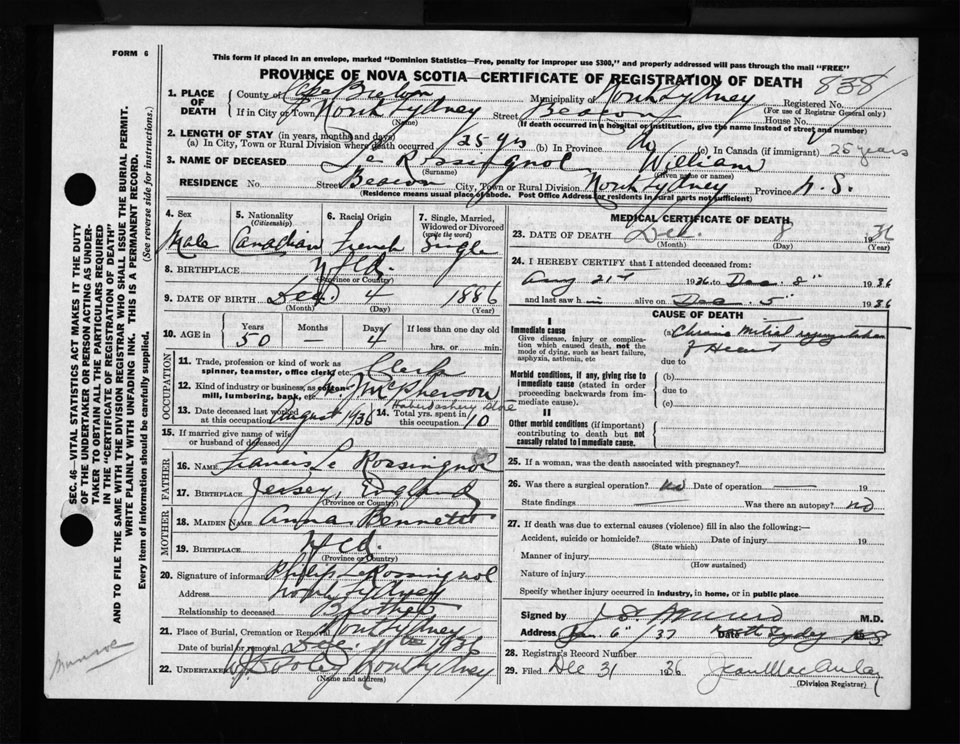 FORM 6
This form if placed in an envelope, marked "Dominion Statistics—Free, penalty for improper use $300," and properly addressed will pass through the mail "FREE"
PROVINCE OF NOVA SCOTIA—CERTIFICATE OF REGISTRATION OF DEATH 838
1. PLACE OF DEATH County of Cape Breton Municipality of North Sydney Registered No.
(For use of Registrar General only)
If in City or Town North Sydney Street Beacon House No.
(Name) (If death occurred in a hospital or institution, give the name instead of street and number)
2. LENGTH OF STAY (in years, months and days)
(a) In City, Town or Rural Division where death occurred 25 yrs (b) In Province (c) In Canada (if immigrant) 25 years
3. NAME OF DECEASED Le Rossignol William
(Surname) (Given name or names)
RESIDENCE No. Street Beacon City, Town or Rural Division North Sydney Province N. S.
(Residence means usual place of abode. Post Office Address for residents in rural parts not sufficient)
4. Sex 5. Nationality 6. Racial Origin 7. Single, Married, Widowed or Divorced
(Citizenship) (write the word)
Male Canadian French Single
8. BIRTHPLACE Nfld.
(Province or Country)
9. DATE OF BIRTH Dec. 4 1886
(Month) (Day) (Year)
10. AGE in Years Months Days If less than one day old
50 — 4 hrs. or min.
OCCUPATION
11. Trade, profession or kind of work as spinner, teamster, office clerk, etc. Clerk
12. Kind of industry or business, as cotton-mill, lumbering, bank, etc. McPherson
Haberdashery Store
13. Date deceased last worked at this occupation August 1936 14. Total yrs. spent in this occupation 10
15. If married give name of wife or husband of deceased
FATHER
16. Name Francis Le Rossignol
17. Birthplace Jersey, England
(Province or Country)
MOTHER
18. Maiden Name Anna Bennett
19. Birthplace Nfld.
(Province or Country)
20. Signature of informant Philip LeRossignol
Address North Sydney
Relationship to deceased Brother
21. Place of Burial, Cremation or Removal North Sydney
Date of burial or removal Dec. 1936
22. Undertaker North Sydney
(Name and address)
MEDICAL CERTIFICATE OF DEATH
23. DATE OF DEATH Dec. 8 1936
(Month) (Day) (Year)
24. I HEREBY CERTIFY that I attended deceased from:
Aug 21st 1936 to Dec. 8" 1936
and last saw him alive on Dec. 5" 1936
CAUSE OF DEATH
I
Immediate cause (a) Chronic Mitral regurgitation of Heart
Give disease, injury or complication which caused death, not the mode of dying, such as heart failure, asphyxia, asthenia, etc
due to
Morbid conditions, if any, giving rise to immediate cause (stated in order proceeding backwards from immediate cause). (b)
due to
(c)
II
Other morbid conditions (if important) contributing to death but not causally related to immediate cause.
25. If a woman, was the death associated with pregnancy?
26. Was there a surgical operation? No Date of operation — 19
State findings Was there an autopsy? No
27. If death was due to external causes (violence) fill in also the following:—
Accident, suicide or homicide? Date of injury 19
(State which)
Manner of injury
(How sustained)
Nature of injury
Specify whether injury occurred in industry, in home, or in public place
Signed by M.D.
Address Date Jan. 6" /37 North Sydney N.S.
28. Registrar's Record Number
29. Filed Dec 31 1936 Jean MacAulay
(Division Registrar)
SEC. 46—VITAL STATISTICS ACT MAKES IT THE DUTY OF THE UNDERTAKER OR PERSON ACTING AS UNDERTAKER TO OBTAIN ALL THE PARTICULARS REQUIRED IN THE "CERTIFICATE OF REGISTRATION OF DEATH" AND TO FILE THE SAME WITH THE DIVISION REGISTRAR WHO SHALL ISSUE THE BURIAL PERMIT.
WRITE PLAINLY WITH UNFADING INK. THIS IS A PERMANENT RECORD.
Every item of information should be carefully supplied. (See reverse side for instructions.)